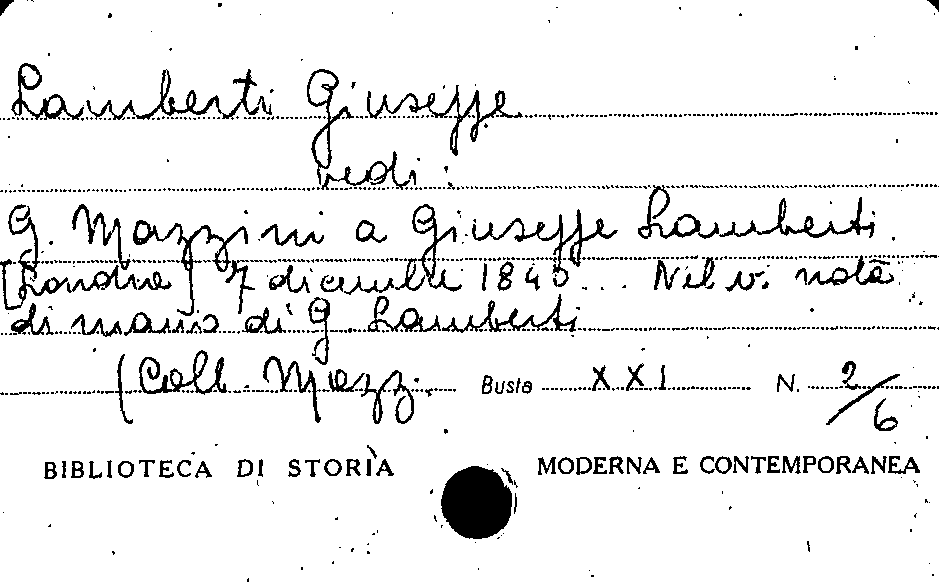 Lamberti Giuseppe
vedi:
G. Mazzini a Giuseppe Lamberti.
[Londra] 7 dicembre 1840... Nel v. nota
di mano di G. Lamberti
(Coll. Mazz. Busta XXI N. 2/6
BIBLIOTECA DI STORIA MODERNA E CONTEMPORANEA